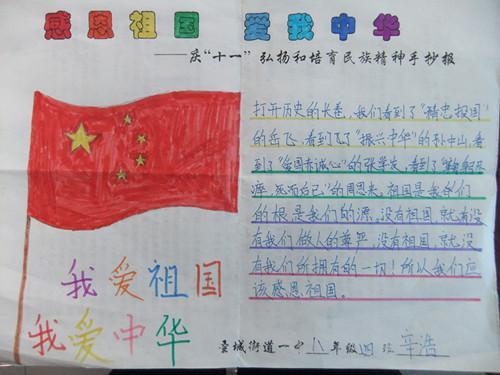 感恩祖国 爱我中华
——庆“十一”弘扬和培育民族精神手抄报
打开历史的长卷,我们看到了“精忠报国”
的岳飞,看到了“振兴中华”的孙中山,看
到了“爱国赤诚心”的张学友,看到了“鞠躬尽
瘁 死而后已”的周恩来。祖国是我们
的根是我们的源,没有祖国,就没
有我们做人的尊严,没有祖国,就没
有我们所拥有的一切!所以我们应
该感恩祖国。
我爱祖国
我爱中华
城街道一中 八年级 四 班 辛浩